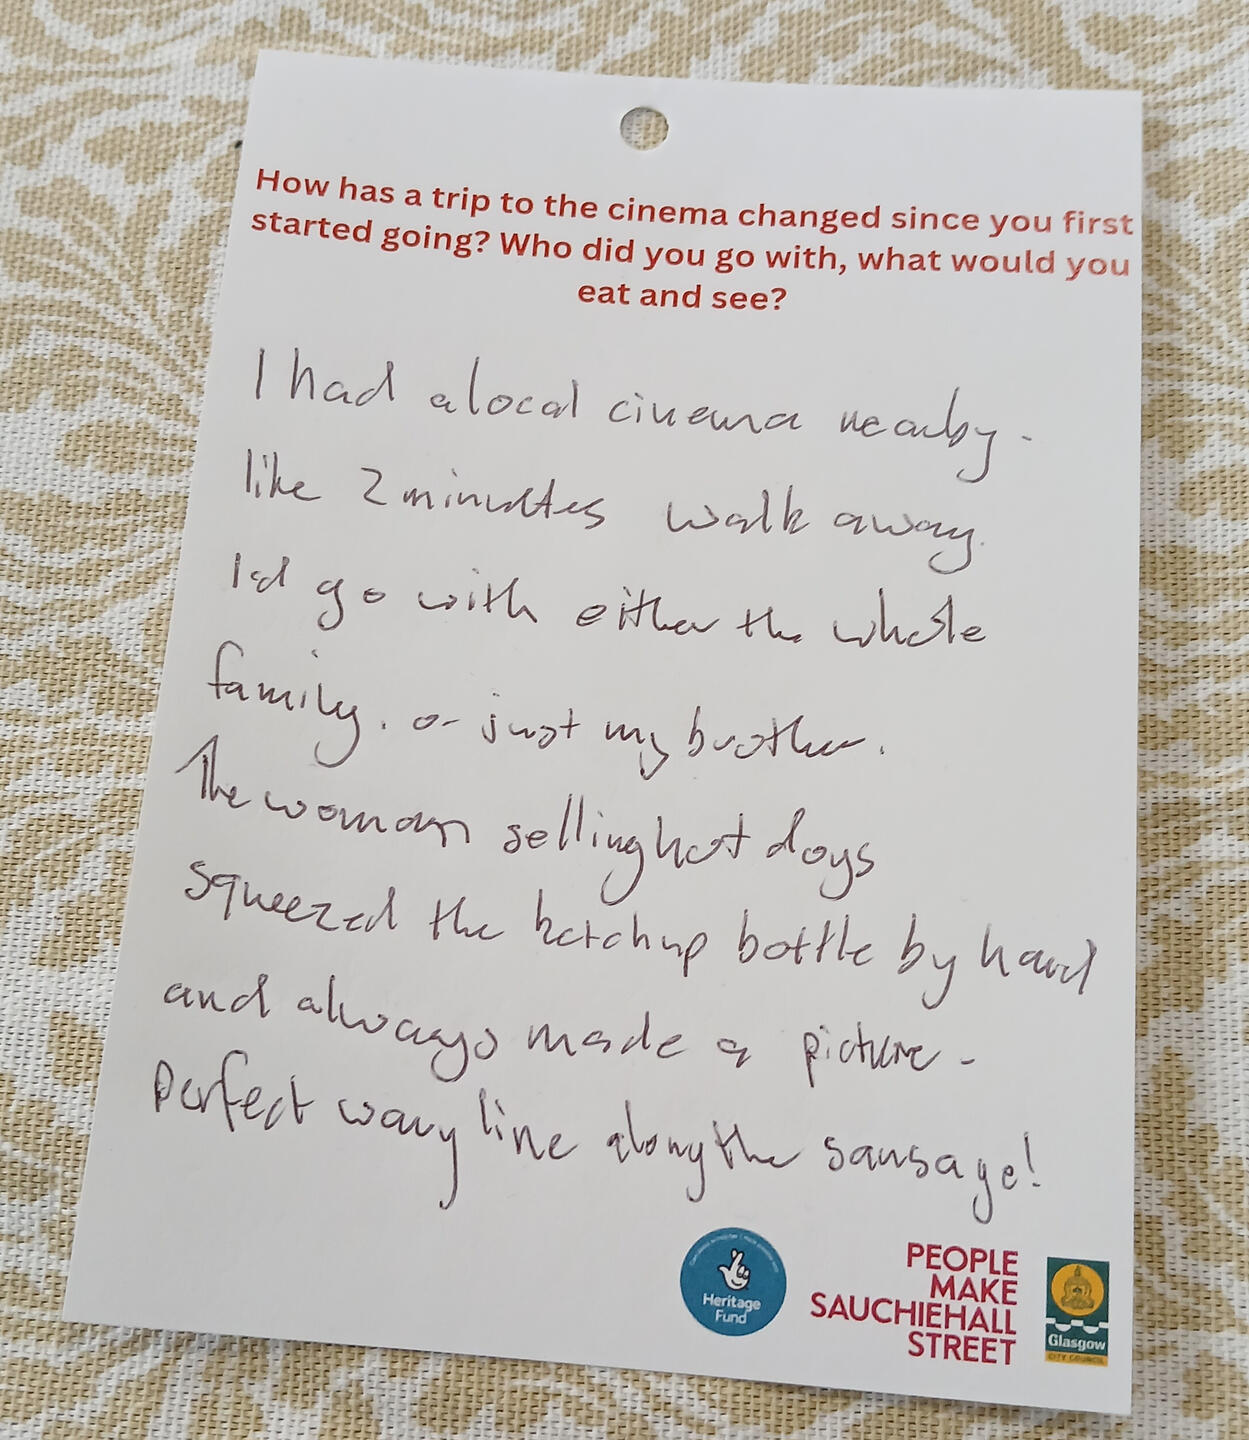 How has a trip to the cinema changed since you first
started going? Who did you go with, what would you
eat and see?
I had a local cinema nearby -
like 2 minutes walk away.
I'd go with either the whole
family, or just my brother.
The woman selling hot dogs
squeezed the ketchup bottle by hand
and always made a picture -
perfect wavy line along the sausage!
Heritage
Fund
PEOPLE
MAKE
SAUCHIEHALL
STREET
Glasgow
CITY COUNCIL